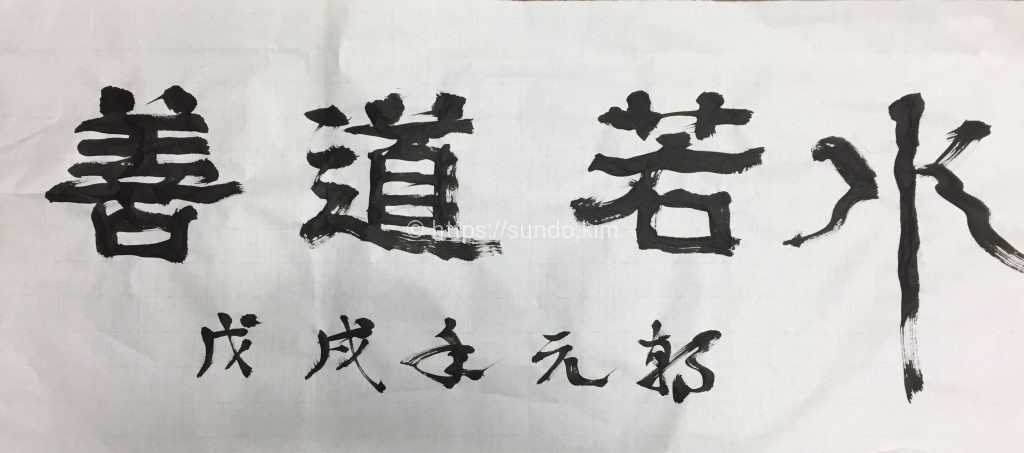 善道若水
戊戌年元朝
© https://sundo.kim